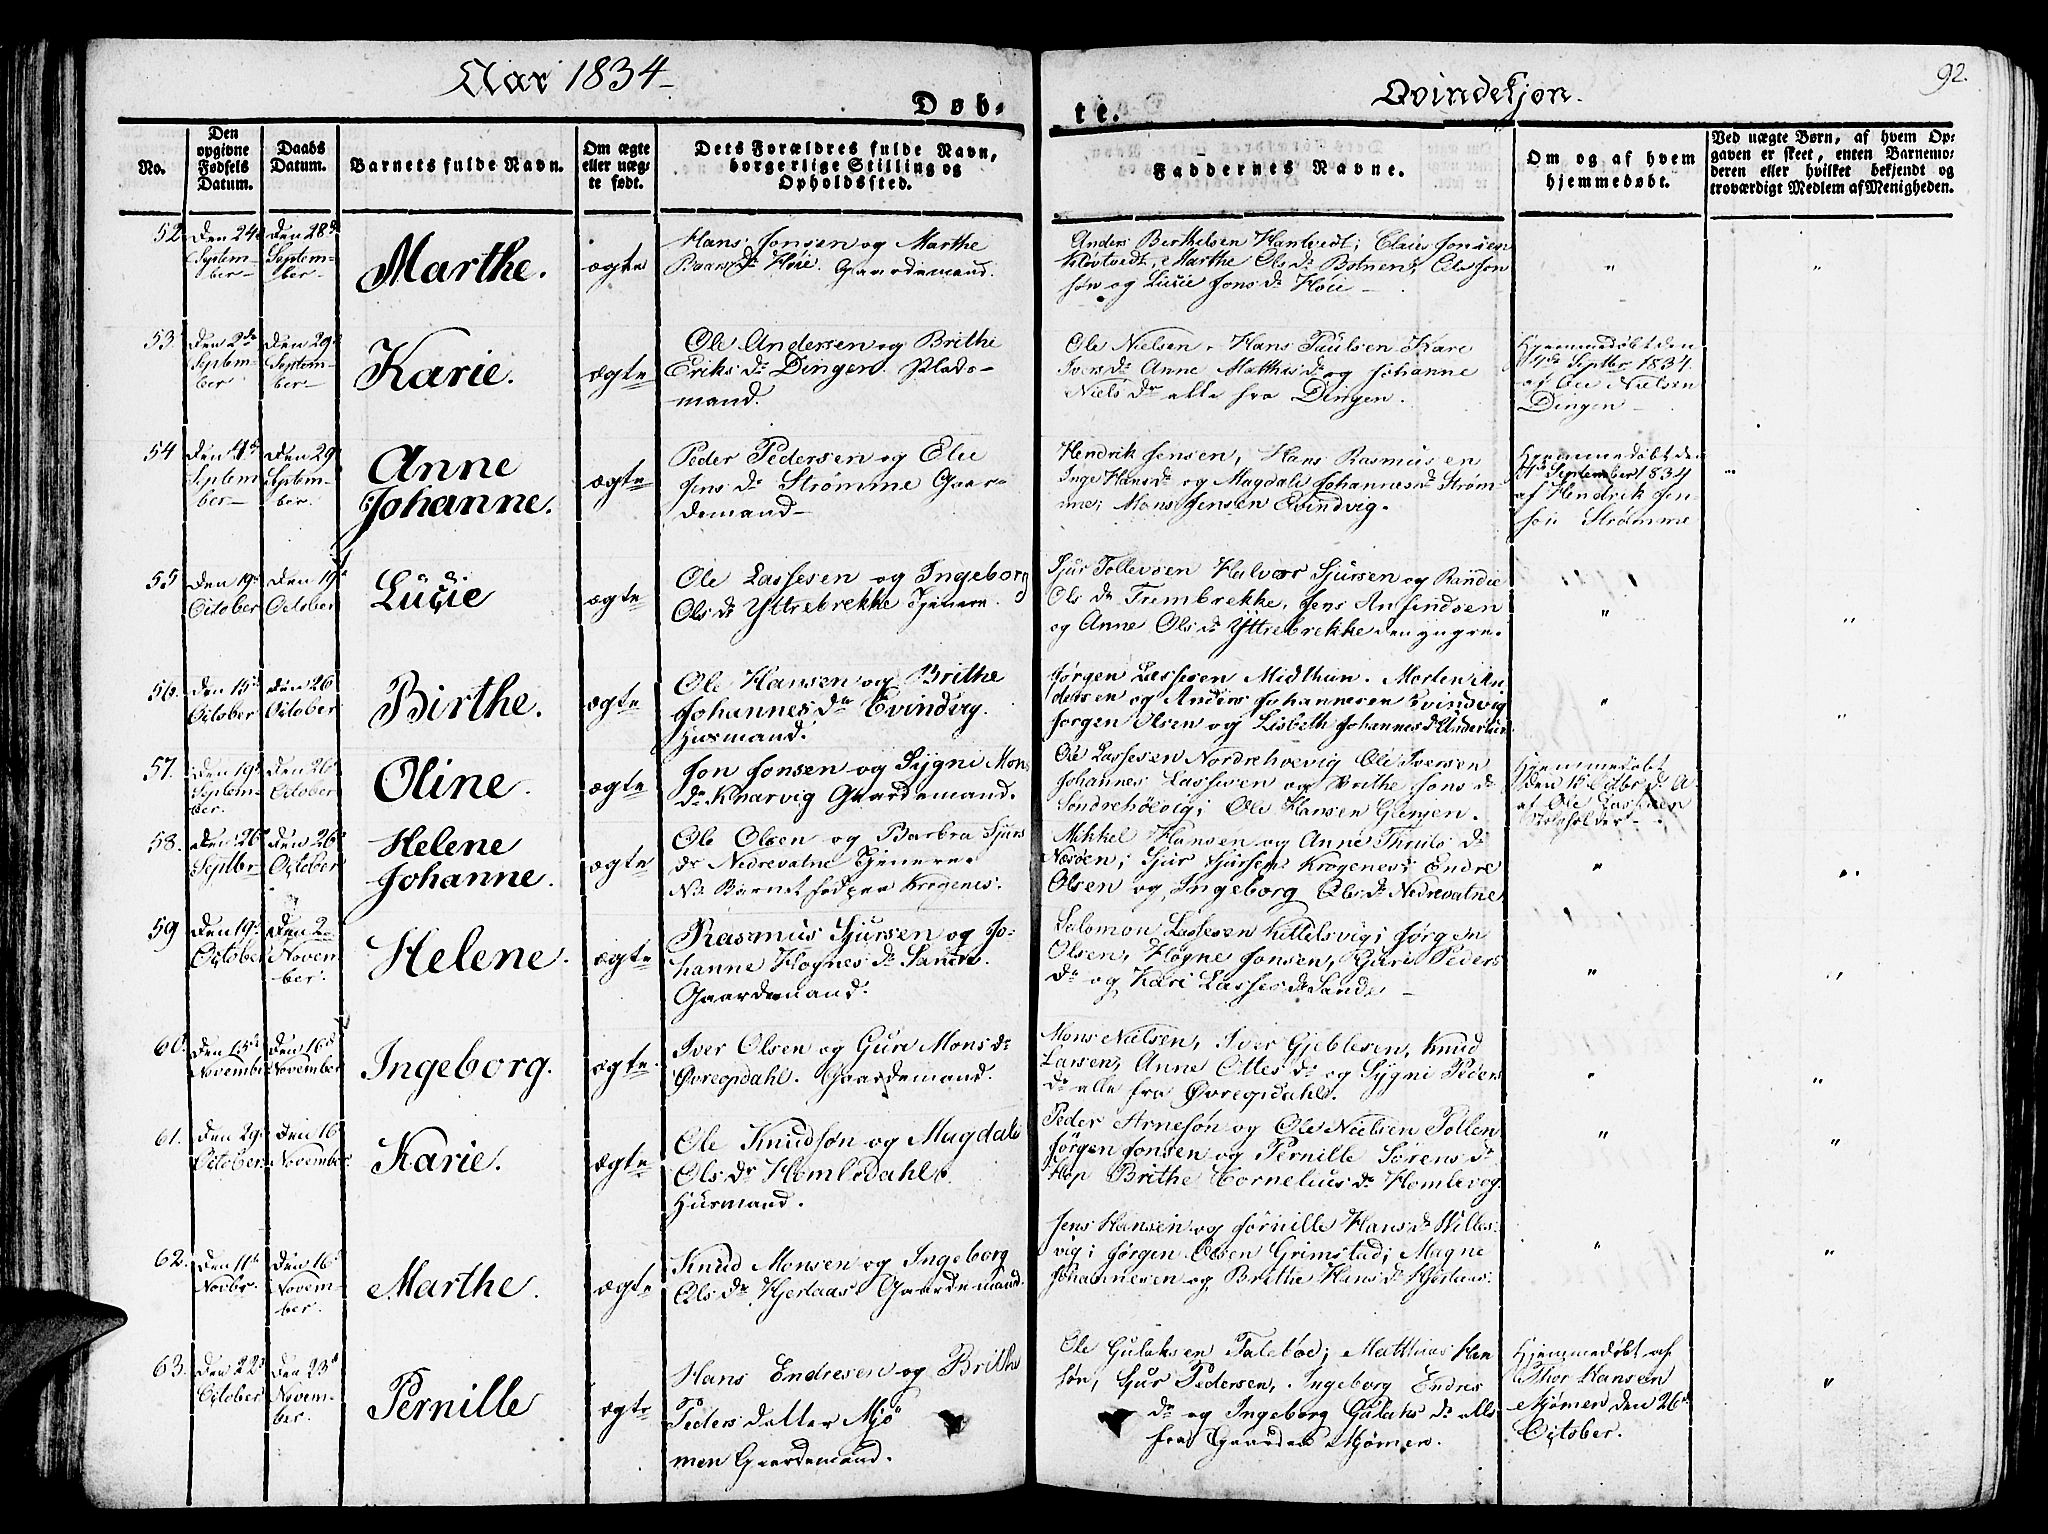 Aar 1834
Døb-
te.
Qvindekjøn.
92.
No.
Den opgivne Fødsels Datum.
Daabs Datum.
Barnets fulde Navn.
Om ægte eller uægte født.
Dets Forældres fulde Navn, borgerlige Stilling og Opholdssted.
Faddernes Navne.
Om og af hvem hjemmedøbt.
Ved uægte Børn, af hvem Opgaven er skeet, enten Barnemoderen eller hvilket bekjendt og troværdigt Medlem af Menigheden.
52
Den 24
September
Den 28de
September
Marthe.
ægte
Hans Jonsen og Marthe
Høie. Gaardemand.
Anders Berthelsen Hantvedt; Claus Jonsen
Kløvtvedt, Marthe Olsdr Botnen,
søn og Lucie Jonsdr Høie
53
Den 2de
September
Den 29
September
Karie.
ægte
Ole Andersen og Brithe
Eriksdr Dingen. Plads-
mand.
Ole Nielsen, Hans Paulsen Kari
Iversdr Anne Matthisdr og Johanne
Nielsdr alle fra Dingen.
Hjemmedøbt den
4de Septbr 1834.
af Ole Nielsen
Dingen
54
Den 4de
September
Den 29
September.
Anne
Johanne.
ægte
Peder Pedersen og Elie
Jensdr Strømme Gaar-
demand
Hendrik Jensen, Hans Rasmusen
Inge Hansdr og Magdale Johannesdr Strøm-
me; Mons Jensen Evindvig.
Hjemmedøbt den
4de September 1834
af Hendrik Jen-
sen Strømme
55
Den 19
October
Den 19de
October
Lucie
ægte
Ole Lassesen og Ingeborg
Olsdr Yttrebrekke Tjenere.
Sjur Tollevsen Halvor Sjursen og Randie
Olsdr Trembrekke, Jens Ansindsen
og Anne Olsdr Yttrebrekke den yngre.
56.
Den 15
October
Den 26
October
Birthe.
ægte
Ole Hansen og Brithe
Johannesdr Evindvig.
Husmand.
Jørgen Lassesen Midthun. Morten An-
dersen og Anders Johannesen Evindvig
Jørgen Olsen og Lisbeth Johannesdr
57.
Den 19
September.
Den 26
October
Oline.
ægte
Jon Jonsen og Sygni Mons
dr Knarvig Gaardemand.
Ole Lassesen Nordrehvevig Ole Iversen
Johannes Lassesen og Brithe Jonsdr
Ole Hansen Glenjen.
Hjemmedøbt
den 15 Octbr d. A.
af Ole Lassesen
58.
Den 26
Septbr
Den 26
October
Helene
Johanne.
ægte
Ole Olsen og Barbra Sjurs
dr Nedrevatne Tjenere
Nb Barnet født paa Krogenes.
Mikkel Hansen og Anne
Sjur Sjursen Krogenes; Endre
Olsen og Ingeborg Olsdr Nedrevatne
59
Den 19
October
Den 2
November.
Helene.
ægte
Rasmus Sjursen og Jo-
hanne Høgnesdr Sande.
Gaardemand.
Salomon Lassesen Kittelsvig; Jørgen
Olsen, Høgne Jonsen, Guri Peders
dr og Kari Lassesdr Sande
60.
Den 15
November
Den 16de
November
Ingeborg.
ægte.
Iver Olsen og Guri Monsdr
Øvregsdahl. Gaardemand.
Mons Nielsen, Iver Gjeblesen, Knud
Larsen, Anne Ottesdr og Sygni Peders
dr alle fra Øvregsdahl.
61.
Den 29
October
Den 16
November.
Karie.
ægte
Ole Knudsøn og Magdale
Olsdr Homledahl.
Husmand.
Peder Arnesøn og Ole Nielsen Tollen
Jørgen Jonsen og Pernille Sørensdr
Hop Brithe Corneliusdr Homlevog.
62.
Den 11
Novbr.
Den 16
November.
Marthe.
ægte
Knud Monsen og Ingeborg
Olsdr Hjertaas Gaardemand.
Jens Hansen og Hansdr Willes-
vig; Jørgen Olsen Grimstad; Magne
Johannesen og Brithe Hansdr Hjertaas.
63.
Den 22
October
Den 23de
November.
Pernille
ægte
Hans Endresen og Brithe
Pedersdatter Mjø-
men Gaardemand.
Ole Gulaksen Taletøe; Matthias Han
søn, Sjur Pedersen, Ingeborg Endres
dr og Ingeborg Gulaksdr alle
fra Gaarden Mjømen.
Hjemmedøbt af
Thor Hansen
Mjømen den 26de
October.